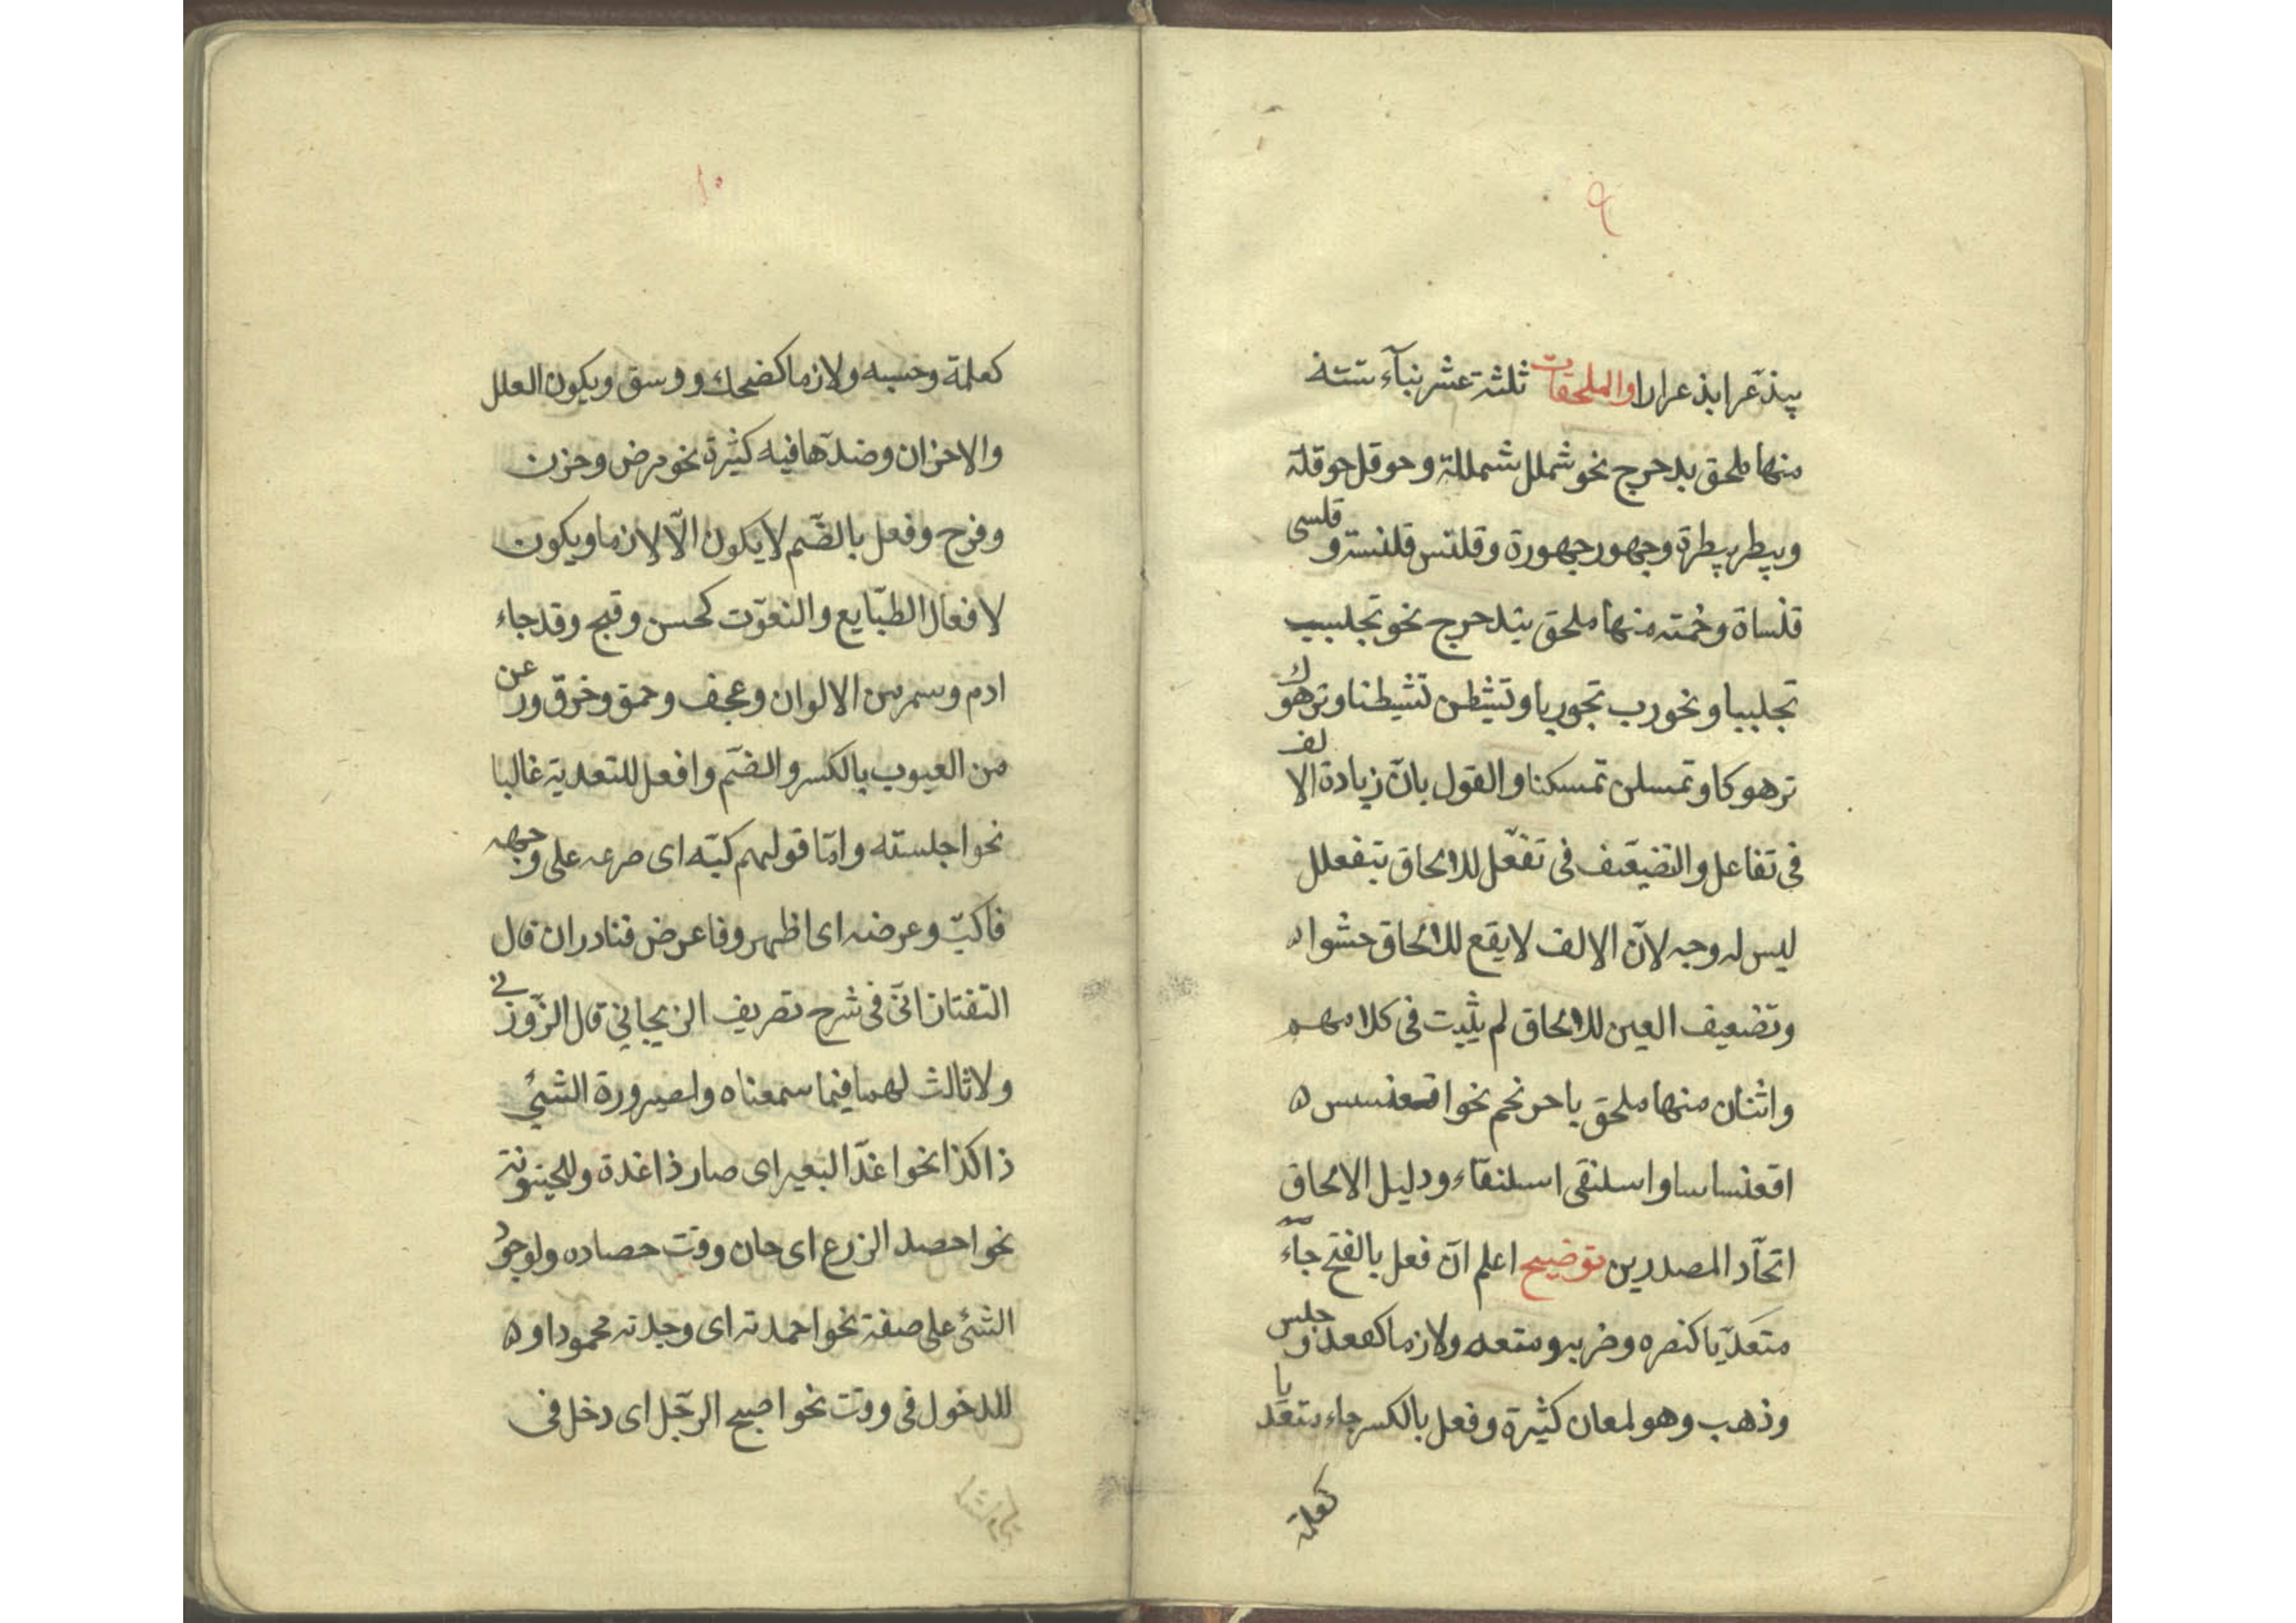 ٩
يبذعر ابذعرارا والملحقات ثلثة عشر بنآء ستته
منها ملحق بدحرج نحو شملل شمللة وحوقل حوقلة
وبيطر بيطرة وجهور جهورة وقلنس قلنسة و قلسى
قلساة وخمته منها ملحق بتدحرج نحو تجلبب
تجلببا وتجورب تجوربا وتشيطن تشيطنا وترهوك
ترهوكا وتمسكن تمسكنا والقول بانّ زيادة الالف
فى تفاعل والتضيعّف فى تفعّل للالحاق بتفعلل
ليس له وجه لانّ الالف لا يقع للالحاق حشوا
وتضعيف العين للالحاق لم يثبت فى كلامهم
واثنان منها ملحق باحرنجم نحو اقعنسس
اقعنساسا واسلنقى اسلنقآء ودليل الالحاق
اتحّاد المصدرين توضيح اعلم انّ فعل بالفتح جآء
متعدّيا كنصره وضربه ومنعه ولازما كقعد و جلس
وذهب وهو لمعان كثيرة وفعل بالكسر جاء متعديا
كعلمة
١٠
كعلمة وحسبه ولازما كضحك ووسق ويكون العلل
والاحزان وضدّها فيه كثيرة نحو مرض وحزن
وفرح وفعل بالضّم لا يكون الّا لازما ويكون
لافعال الطبّايع والنعوّت كحسن وقبح وقد جاء
ادم وسمر من الالوان وعجف وحمق وخرق ورعن
من العيوب بالكسر والضّم وافعل للتعدية غالبا
نحو اجلسته وامّا قولهم كبّه اى صرعه على وجهه
فاكبّ وعرضه اى اظهره فاعرض فنادران قال
التفتازانىّ فى شرح تصريف الزنجاني قال الزّوزنى
ولا ثالث لهما فيما سمعناه ولصيرورة الشئ
ذا كذا نحو اغدّ البعير اى صار ذا غدة وللحينونة
نحو احصد الزرع اى حان ووقت حصاده ولوجود
الشئ على صفة نحو احمدته اى وجدته محمودا او
للدخول فى وقت نحو اصبح الرجّل اى دخل فى